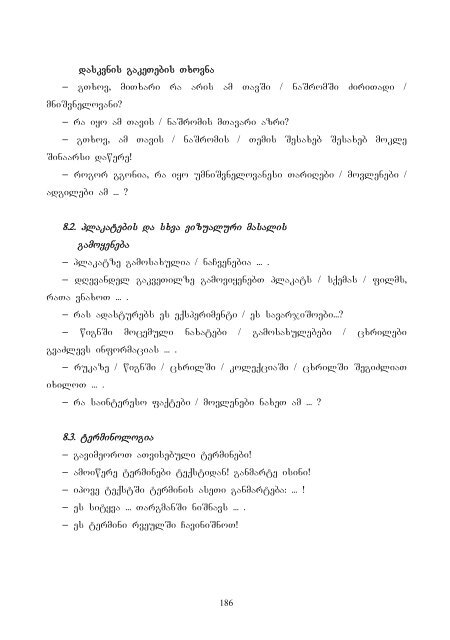 დასკვნის გაკეთების თხოვნა
– გთხოვ, მითხარი რა არის ამ თავში / ნაშრომში ძირითადი /
მნიშვნელოვანი?
– რა იყო ამ თავის / ნაშრომის მთავარი აზრი?
– გთხოვ, ამ თავის / ნაშრომის / თემის შესახებ შესახებ მოკლე
შინაარსი დაწერე!
– როგორ გგონია, რა იყო უმნიშვნელოვანესი თარიღები / მოვლენები /
ადგილები ამ ... ?
8.2. პლაკატების და სხვა ვიზუალური მასალის
გამოყენება
– პლაკატზე გამოსახულია / ნაჩვენებია ... .
– დღევანდელ გაკვეთილზე გამოვიყენებთ პლაკატს / სქემას / ფილმს,
რათა ვნახოთ ... .
– რას ადასტურებს ეს ექსპერიმენტი / ეს სავარჯიშოები...?
– წიგნში მოცემული ნახატები / გამოსახულებები / ცხრილები
გვაძლევს ინფორმაციას ... .
– რუკაზე / წიგნში / ცხრილში / კოლექციაში / ცხრილში შეგიძლიათ
იხილოთ ... .
– რა საინტერესო ფაქტები / მოვლენები ნახეთ ამ ... ?
8.3. ტერმინოლოგია
– გავიმეოროთ ათვისებული ტერმინები!
– ამოიწერე ტერმინები ტექსტიდან! განმარტე ისინი!
– იპოვე ტექსტში ტერმინის ასეთი განმარტება: ... !
– ეს სიტყვა ... თარგმანში ნიშნავს ... .
– ეს ტერმინი რვეულში ჩავინიშნოთ!
186